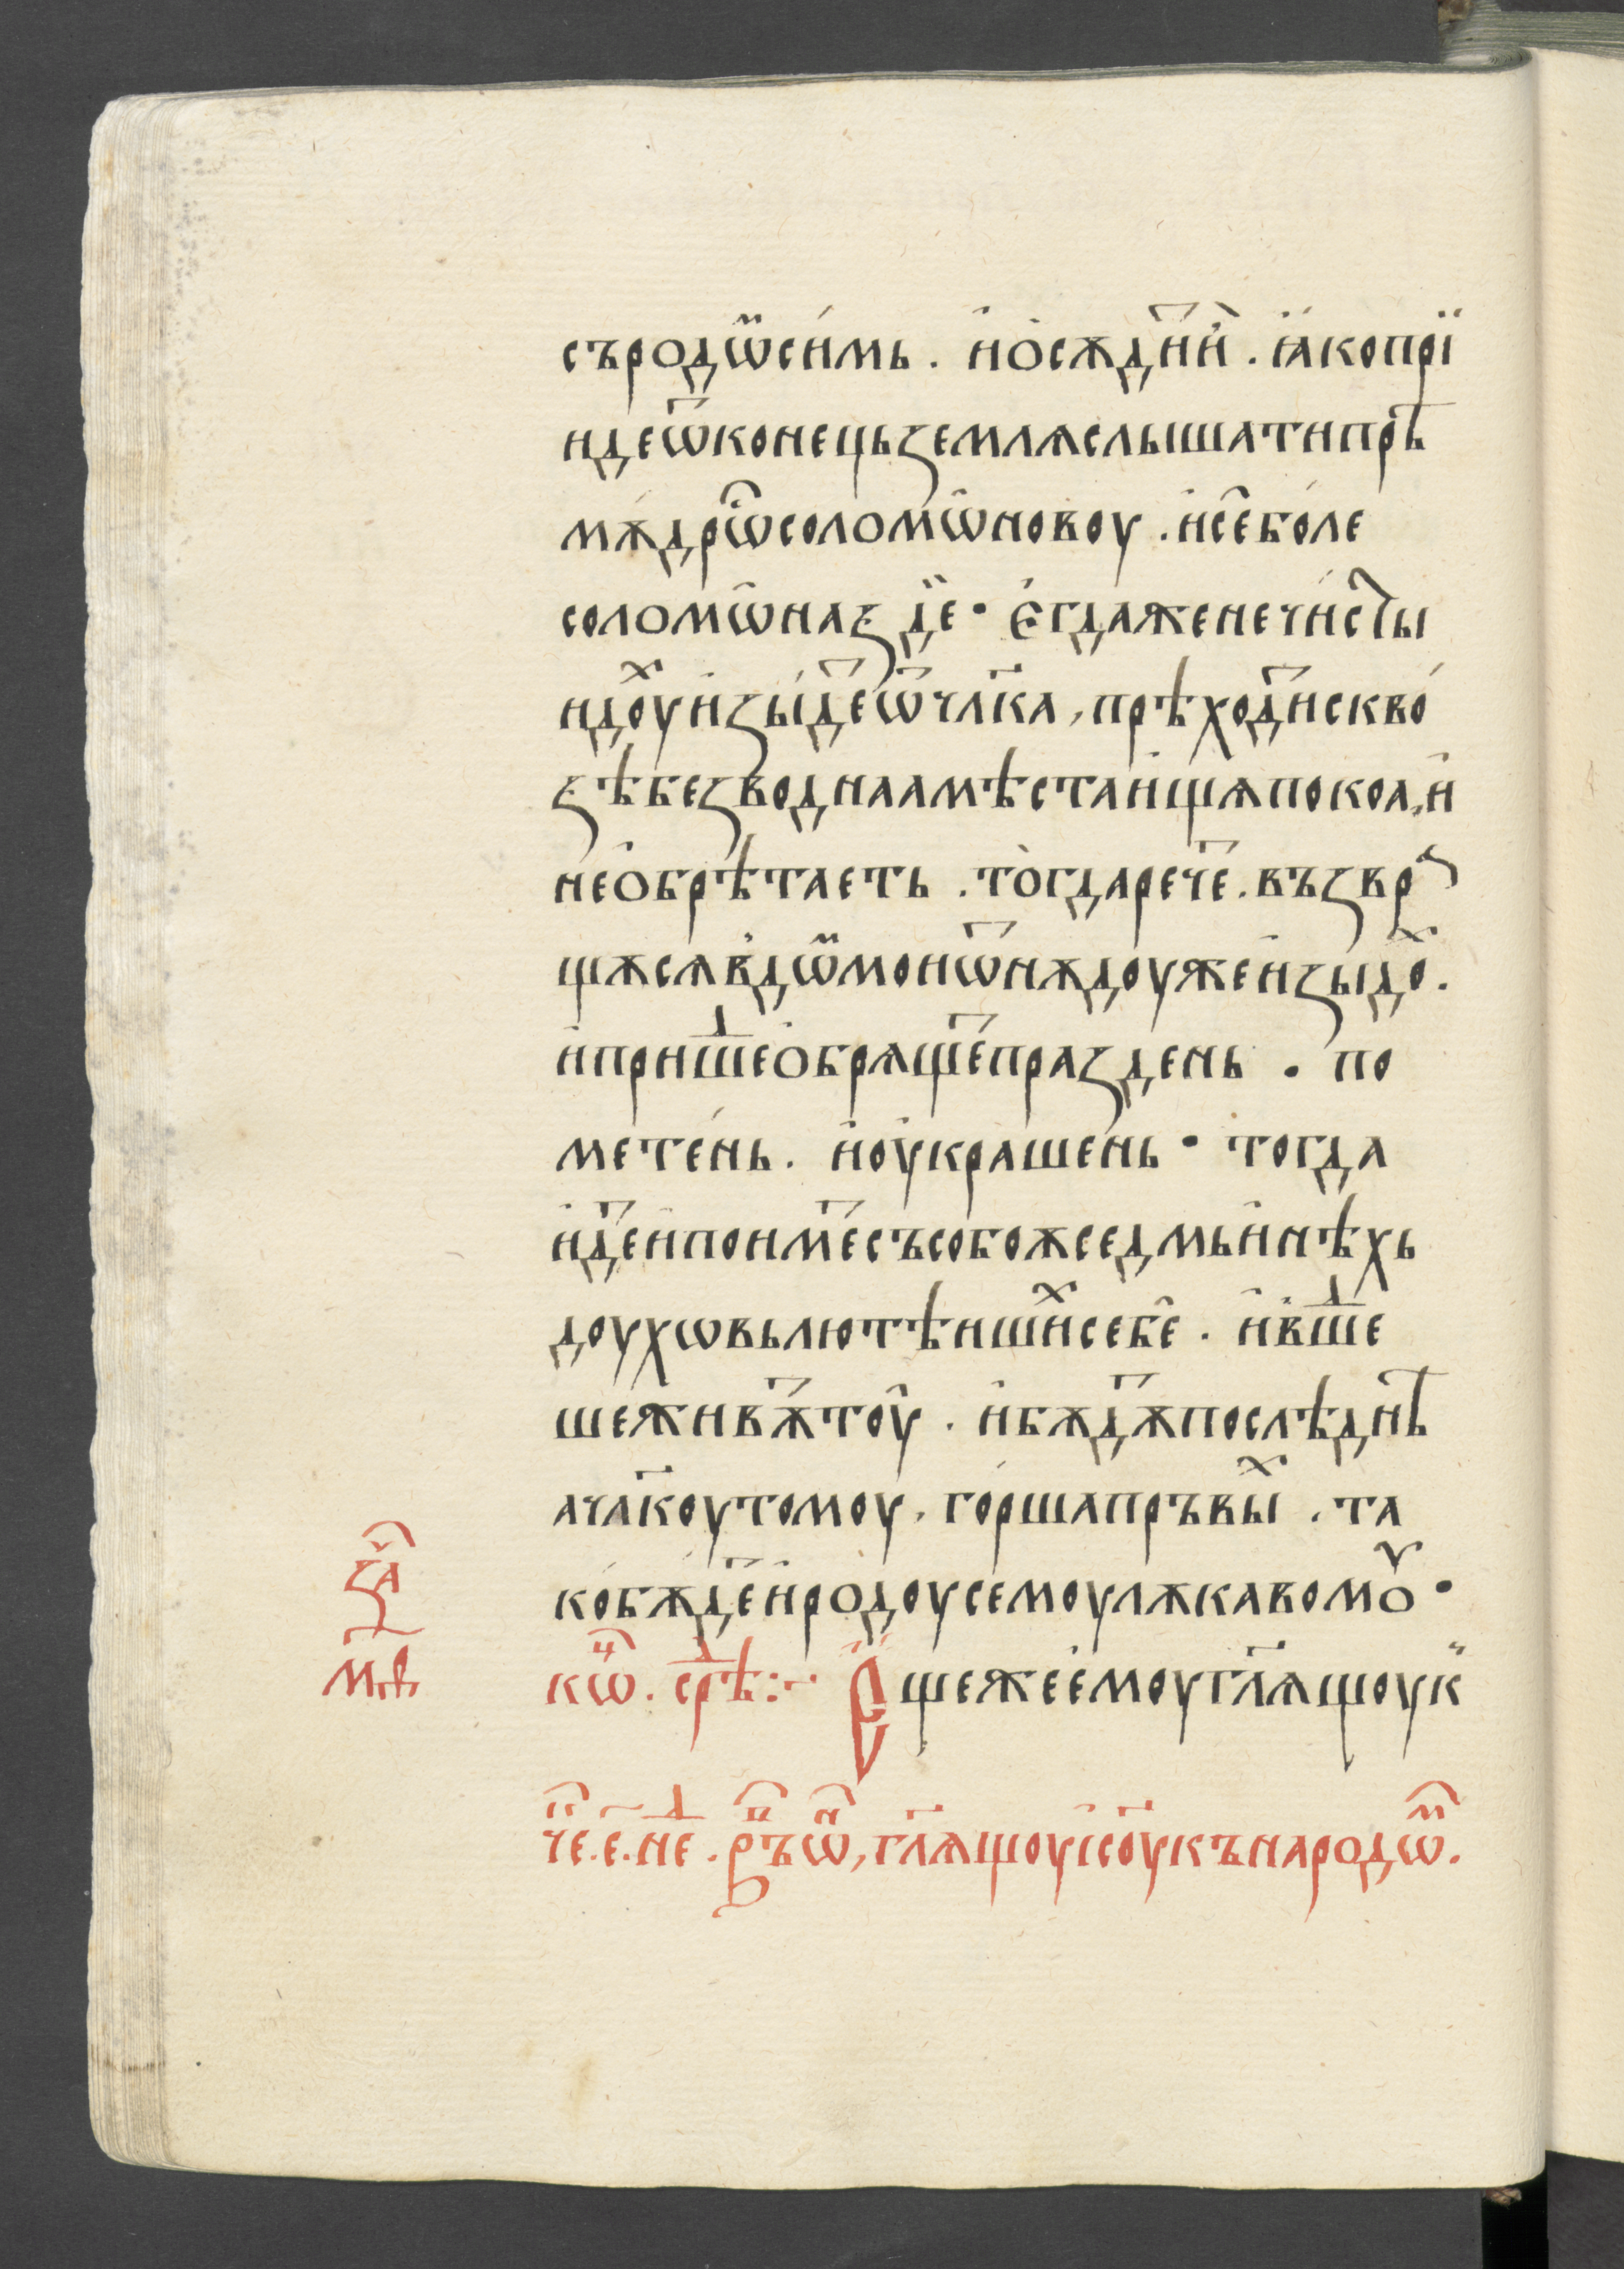 съродѡ҃сі́мь . и҆ѻ҆сѫди́тии҆ . ꙗ҆́ко прїи
иде ѿ конець ꙁемлѧ слышати прѣ
мѫ́дрѡⷭ҇ соломѡ̑новоу . и҆сѐ бо́ле
соломѡ̑на ꙁде · Е҆гда же нечи́сты
и доу́ⷯ и҆ꙁы́деⷮ ѿ чл҃ка , прѣхо́диⷮ скво́
ꙁѣ беꙁводнаа мѣста и҆щѧ покоа , и҆
не ѻ҆брѣтаеть . то̀гда рече́ⷮ . въꙁвра
щѫсѧ в̾дѡⷨ мои ѿнѫдоуже и҆ꙁыдоⷯ .
и҆ пришеⷣ ѻ҆брѧще́ⷮ праꙁдень . по
мете́нь . и҆ оу҆краше́нь · тогда
и҆де́ⷮ и҆ поиме́ⷮ съ собоѫ седмь и҆нѣхь
доухѡвь лютѣишиⷯ себе̑ . и҆ в̾шеⷣ
ше жи́вѫⷮ тоу̑ . и҆ бѫ́дѫⷮ послѣднѣ
а чл҃коу томоу , го́рша пръвыⷯ . та
ко́ бѫ́деⷮ и҆ родоу семоу лѫкавомоу ·
ꙁаⷱ҇
м҃в
кѡⷰ҇ . среⷣѣ :· Е҆ще же е҆моу гл҃ѧщоу к
чеⷮ҇ . є҃ . неⷣ . ръⷰ҇ѡⷩ҇ , гл҃ѧщоу і҆со́у къ народѡⷨ҇ .